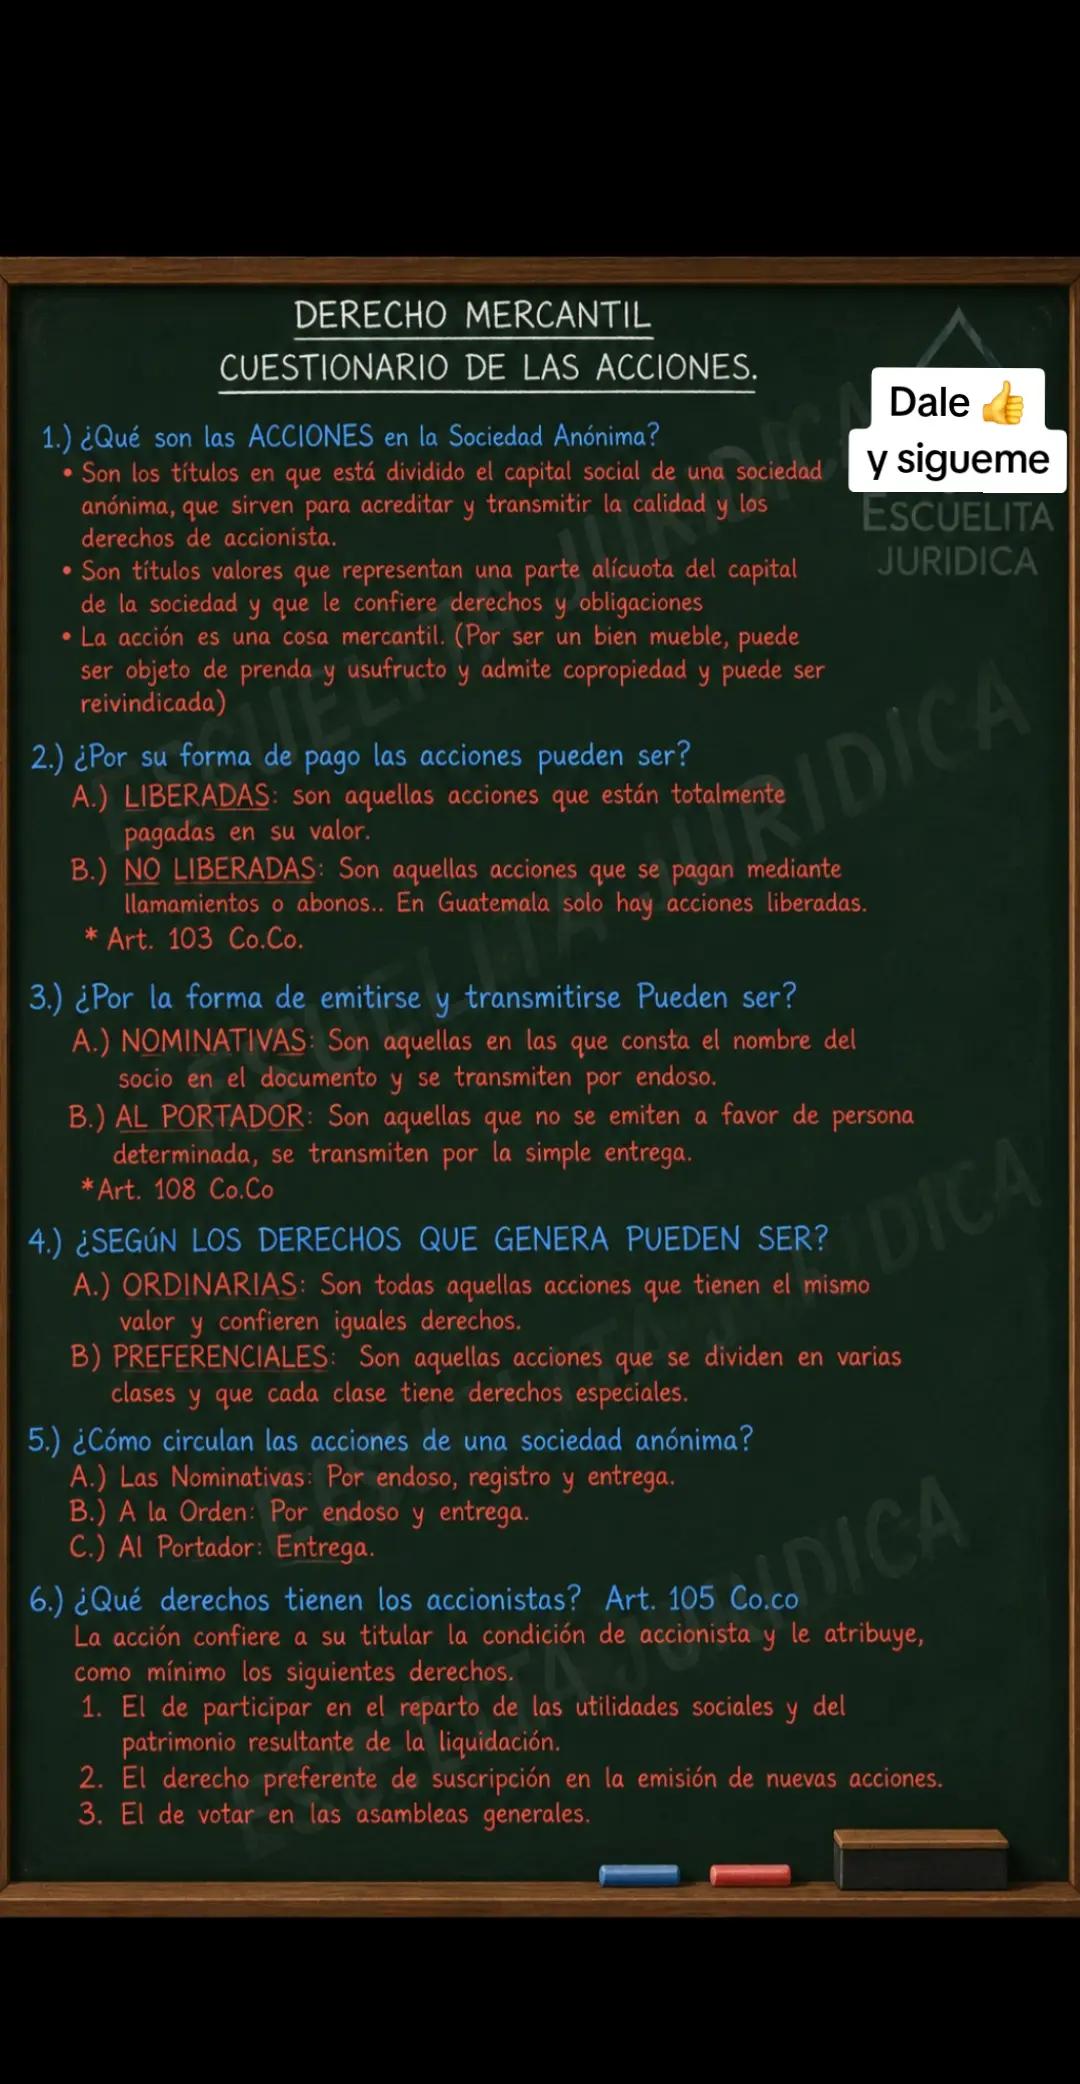 DERECHO MERCANTIL
CUESTIONARIO DE LAS ACCIONES.
Dale 👍
y sigueme
ESCUELITA
JURIDICA
1.) ¿Qué son las ACCIONES en la Sociedad Anónima?
• Son los títulos en que está dividido el capital social de una sociedad
anónima, que sirven para acreditar y transmitir la calidad y los
derechos de accionista.
• Son títulos valores que representan una parte alícuota del capital
de la sociedad y que le confiere derechos y obligaciones
• La acción es una cosa mercantil. (Por ser un bien mueble, puede
ser objeto de prenda y usufructo y admite copropiedad y puede ser
reivindicada)
2.) ¿Por su forma de pago las acciones pueden ser?
A.) LIBERADAS: son aquellas acciones que están totalmente
pagadas en su valor.
B.) NO LIBERADAS: Son aquellas acciones que se pagan mediante
llamamientos o abonos.. En Guatemala solo hay acciones liberadas.
* Art. 103 Co.Co.
3.) ¿Por la forma de emitirse y transmitirse Pueden ser?
A.) NOMINATIVAS: Son aquellas en las que consta el nombre del
socio en el documento y se transmiten por endoso.
B.) AL PORTADOR: Son aquellas que no se emiten a favor de persona
determinada, se transmiten por la simple entrega.
*Art. 108 Co.Co
4.) ¿SEGúN LOS DERECHOS QUE GENERA PUEDEN SER?
A.) ORDINARIAS: Son todas aquellas acciones que tienen el mismo
valor y confieren iguales derechos.
B) PREFERENCIALES: Son aquellas acciones que se dividen en varias
clases y que cada clase tiene derechos especiales.
5.) ¿Cómo circulan las acciones de una sociedad anónima?
A.) Las Nominativas: Por endoso, registro y entrega.
B.) A la Orden: Por endoso y entrega.
C.) Al Portador: Entrega.
6.) ¿Qué derechos tienen los accionistas? Art. 105 Co.co
La acción confiere a su titular la condición de accionista y le atribuye,
como mínimo los siguientes derechos.
1. El de participar en el reparto de las utilidades sociales y del
patrimonio resultante de la liquidación.
2. El derecho preferente de suscripción en la emisión de nuevas acciones.
3. El de votar en las asambleas generales.
ESCUELITA JURIDICA
ESCUELITA JURIDICA
ESCUELITA JURIDICA
ESCUELITA JURIDICA